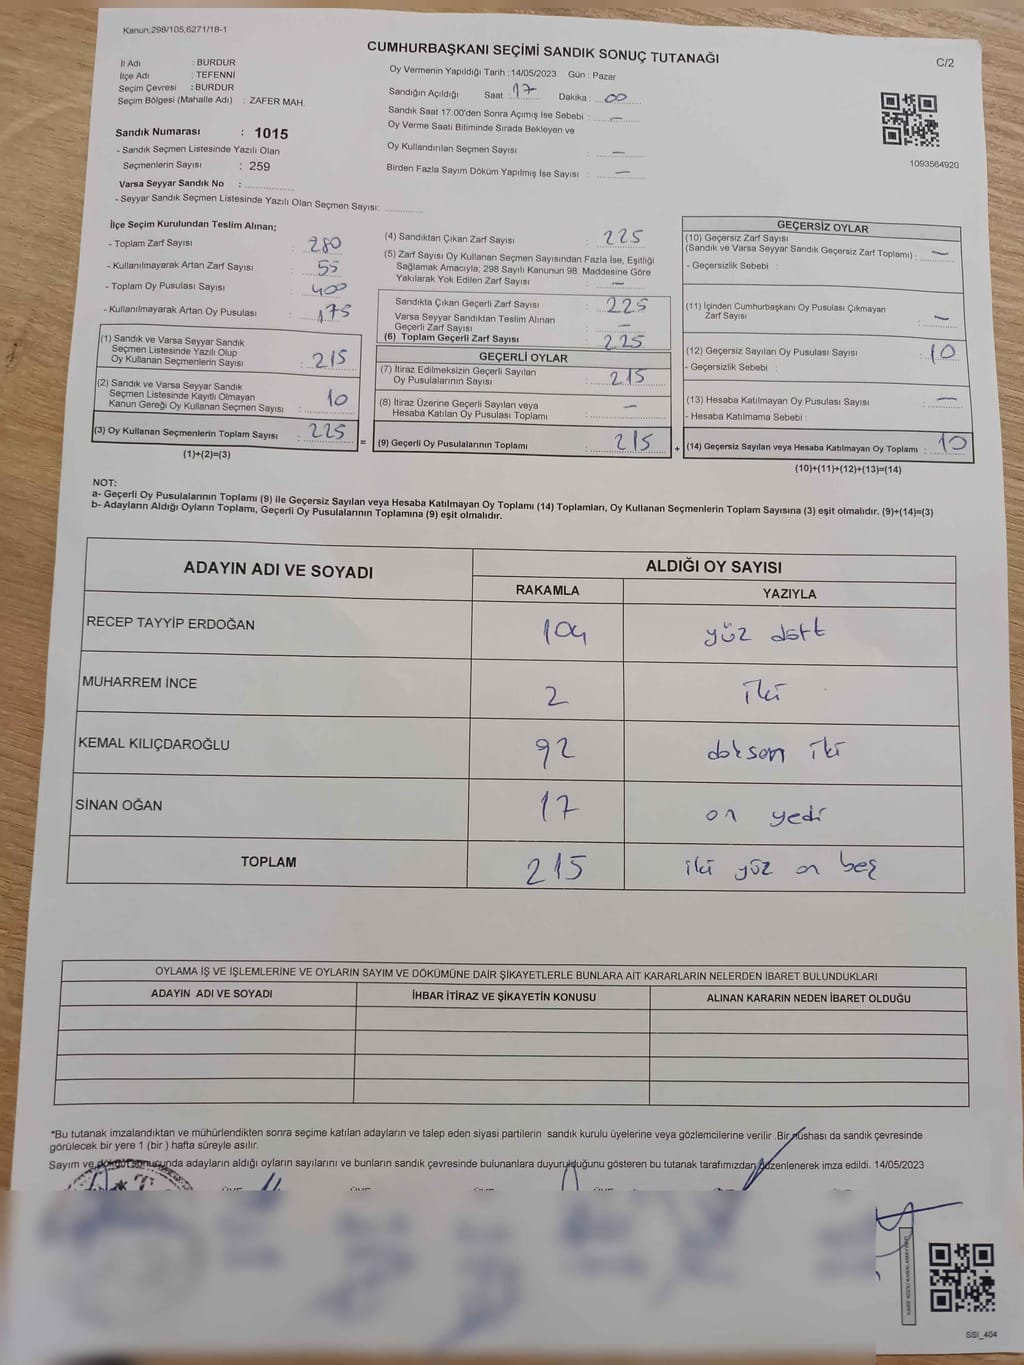 Kanun;298/105,6271/18-1
CUMHURBAŞKANI SEÇİMİ SANDIK SONUÇ TUTANAĞI
C/2
İl Adı : BURDUR
İlçe Adı : TEFENNİ
Seçim Çevresi : BURDUR
Seçim Bölgesi (Mahalle Adı) : ZAFER MAH.
Sandık Numarası : 1015
- Sandık Seçmen Listesinde Yazılı Olan
Seçmenlerin Sayısı : 259
Varsa Seyyar Sandık No :
- Seyyar Sandık Seçmen Listesinde Yazılı Olan Seçmen Sayısı:
Oy Vermenin Yapıldığı Tarih : 14/05/2023 Gün : Pazar
Sandığın Açıldığı Saat : 17 Dakika : 00
Sandık Saat 17.00'den Sonra Açımış İse Sebebi : —
Oy Verme Saati Bitiminde Sırada Bekleyen ve
Oy Kullandırılan Seçmen Sayısı : —
Birden Fazla Sayım Döküm Yapılmış İse Sayısı : —
1093564920
İlçe Seçim Kurulundan Teslim Alınan;
- Toplam Zarf Sayısı : 280
- Kullanılmayarak Artan Zarf Sayısı : 55
- Toplam Oy Pusulası Sayısı : 400
- Kullanılmayarak Artan Oy Pusulası : 175
(1) Sandık ve Varsa Seyyar Sandık
Seçmen Listesinde Yazılı Olup
Oy Kullanan Seçmenlerin Sayısı : 215
(2) Sandık ve Varsa Seyyar Sandık
Seçmen Listesinde Kayıtlı Olmayan
Kanun Gereği Oy Kullanan Seçmen Sayısı : 10
(3) Oy Kullanan Seçmenlerin Toplam Sayısı : 225
(1)+(2)=(3)
=
(4) Sandıktan Çıkan Zarf Sayısı : 225
(5) Zarf Sayısı Oy Kullanan Seçmen Sayısından Fazla İse, Eşitliği
Sağlamak Amacıyla; 298 Sayılı Kanunun 98. Maddesine Göre
Yakılarak Yok Edilen Zarf Sayısı : —
Sandıkta Çıkan Geçerli Zarf Sayısı : 225
Varsa Seyyar Sandıktan Teslim Alınan
Geçerli Zarf Sayısı : —
(6) Toplam Geçerli Zarf Sayısı : 225
GEÇERLİ OYLAR
(7) İtiraz Edilmeksizin Geçerli Sayılan
Oy Pusulalarının Sayısı : 215
(8) İtiraz Üzerine Geçerli Sayılan veya
Hesaba Katılan Oy Pusulası Toplamı : —
(9) Geçerli Oy Pusulalarının Toplamı : 215
+
GEÇERSİZ OYLAR
(10) Geçersiz Zarf Sayısı
(Sandık ve Varsa Seyyar Sandık Geçersiz Zarf Toplamı) : —
- Geçersizlik Sebebi :
(11) İçinden Cumhurbaşkanı Oy Pusulası Çıkmayan
Zarf Sayısı : —
(12) Geçersiz Sayılan Oy Pusulası Sayısı : 10
- Geçersizlik Sebebi :
(13) Hesaba Katılmayan Oy Pusulası Sayısı : —
- Hesaba Katılmama Sebebi :
(14) Geçersiz Sayılan veya Hesaba Katılmayan Oy Toplamı : 10
(10)+(11)+(12)+(13)=(14)
NOT:
a- Geçerli Oy Pusulalarının Toplamı (9) ile Geçersiz Sayılan veya Hesaba Katılmayan Oy Toplamı (14) Toplamları, Oy Kullanan Seçmenlerin Toplam Sayısına (3) eşit olmalıdır. (9)+(14)=(3)
b- Adayların Aldığı Oyların Toplamı, Geçerli Oy Pusulalarının Toplamına (9) eşit olmalıdır.
ADAYIN ADI VE SOYADI ALDIĞI OY SAYISI
RAKAMLA YAZIYLA
RECEP TAYYİP ERDOĞAN 104 yüz dört
MUHARREM İNCE 2 iki
KEMAL KILIÇDAROĞLU 92 doksan iki
SİNAN OĞAN 17 on yedi
TOPLAM 215 iki yüz on beş
OYLAMA İŞ VE İŞLEMLERİNE VE OYLARIN SAYIM VE DÖKÜMÜNE DAİR ŞİKAYETLERLE BUNLARA AİT KARARLARIN NELERDEN İBARET BULUNDUKLARI
ADAYIN ADI VE SOYADI İHBAR İTİRAZ VE ŞİKAYETİN KONUSU ALINAN KARARIN NEDEN İBARET OLDUĞU
*Bu tutanak imzalandıktan ve mühürlendikten sonra seçime katılan adayların ve talep eden siyasi partilerin sandık kurulu üyelerine veya gözlemcilerine verilir. Bir nüshası da sandık çevresinde
görülecek bir yere 1 (bir) hafta süreyle asılır.
Sayım ve döküm sonucunda adayların aldığı oyların sayılarını ve bunların sandık çevresinde bulunanlara duyurulduğunu gösteren bu tutanak tarafımızdan düzenlenerek imza edildi. 14/05/2023
SSI_404